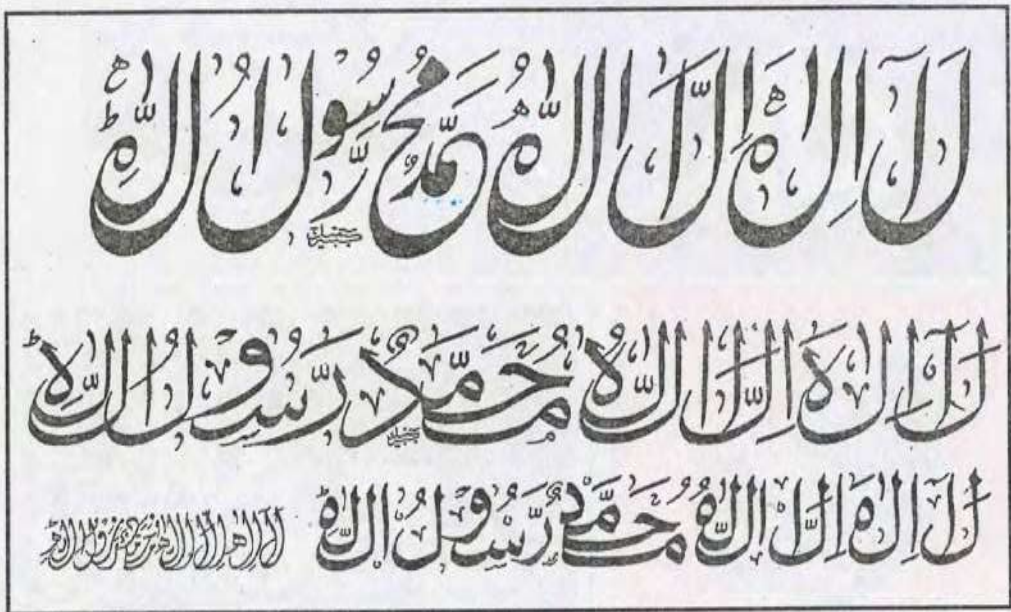 لَا اِلٰهَ اِلَّا اللّٰهُ مُحَمَّدٌ رَّسُوْلُ اللّٰهِ ؕ
لَا اِلٰهَ اِلَّا اللّٰهُ مُحَمَّدٌ رَّسُوْلُ اللّٰهِ ؕ
لَا اِلٰهَ اِلَّا اللّٰهُ مُحَمَّدٌ رَّسُوْلُ اللّٰهِ ؕ لَا اِلٰهَ اِلَّا اللّٰهُ مُحَمَّدٌ رَّسُوْلُ اللّٰهِ